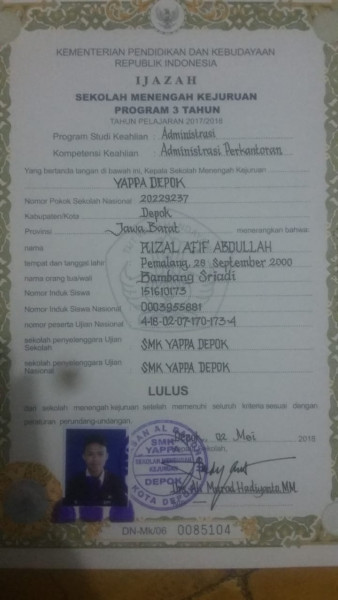 KEMENTERIAN PENDIDIKAN DAN KEBUDAYAAN
REPUBLIK INDONESIA
IJAZAH
SEKOLAH MENENGAH KEJURUAN
PROGRAM 3 TAHUN
TAHUN PELAJARAN 2017/2018
Program Studi Keahlian : Administrasi
Kompetensi Keahlian : Administrasi Perkantoran
Yang bertanda tangan di bawah ini, Kepala Sekolah Menengah Kejuruan
YAPPA DEPOK
Nomor Pokok Sekolah Nasional : 20229237
Kabupaten/Kota : Depok
Provinsi : Jawa Barat menerangkan bahwa:
nama : RIZAL AFIF ABDULLAH
tempat dan tanggal lahir : Pemalang, 28 September 2000
nama orang tua/wali : Bambang Sriadi
Nomor Induk Siswa : 151610173
Nomor Induk Siswa Nasional : 0003955881
nomor peserta Ujian Nasional : 4-18-02-07-170-173-4
sekolah penyelenggara Ujian Sekolah : SMK YAPPA DEPOK
sekolah penyelenggara Ujian Nasional : SMK YAPPA DEPOK
LULUS
dari sekolah menengah kejuruan setelah memenuhi seluruh kriteria sesuai dengan
peraturan perundang-undangan.
Depok, 02 Mei 2018
SMK
YAPPA
DEPOK
KOTA DEPOK
DN-Mk/06 0085104